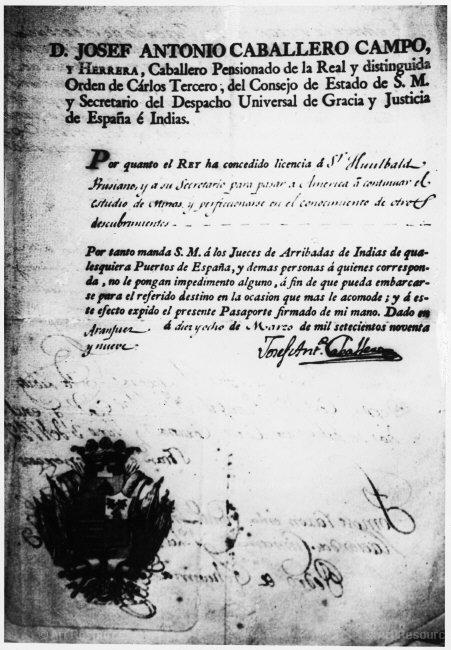 D. JOSEF ANTONIO CABALLERO CAMPO,
Y HERRERA, Caballero Pensionado de la Real y distinguida
Orden de Cárlos Tercero, del Consejo de Estado de S. M.
y Secretario del Despacho Universal de Gracia y Justicia
de España é Indias.
Por quanto el REY ha concedido licencia á Sr. Huulbald
Prusiano, y a su Secretario para pasar a America à continuar el
estudio de Minas, y perficionarse en el conocimiento de otros
descubrimientos
Por tanto manda S. M. á los Jueces de Arribadas de Indias de qua-
lesquiera Puertos de España, y demas personas á quienes correspon-
da, no le pongan impedimento alguno, á fin de que pueda embarcar-
se para el referido destino en la ocasion que mas le acomode; y á es-
te efecto expido el presente Pasaporte firmado de mi mano. Dado en
Aranjuez á diez y ocho de Marzo de mil setecientos noventa
y nueve.
Josef Ant.º Caballero